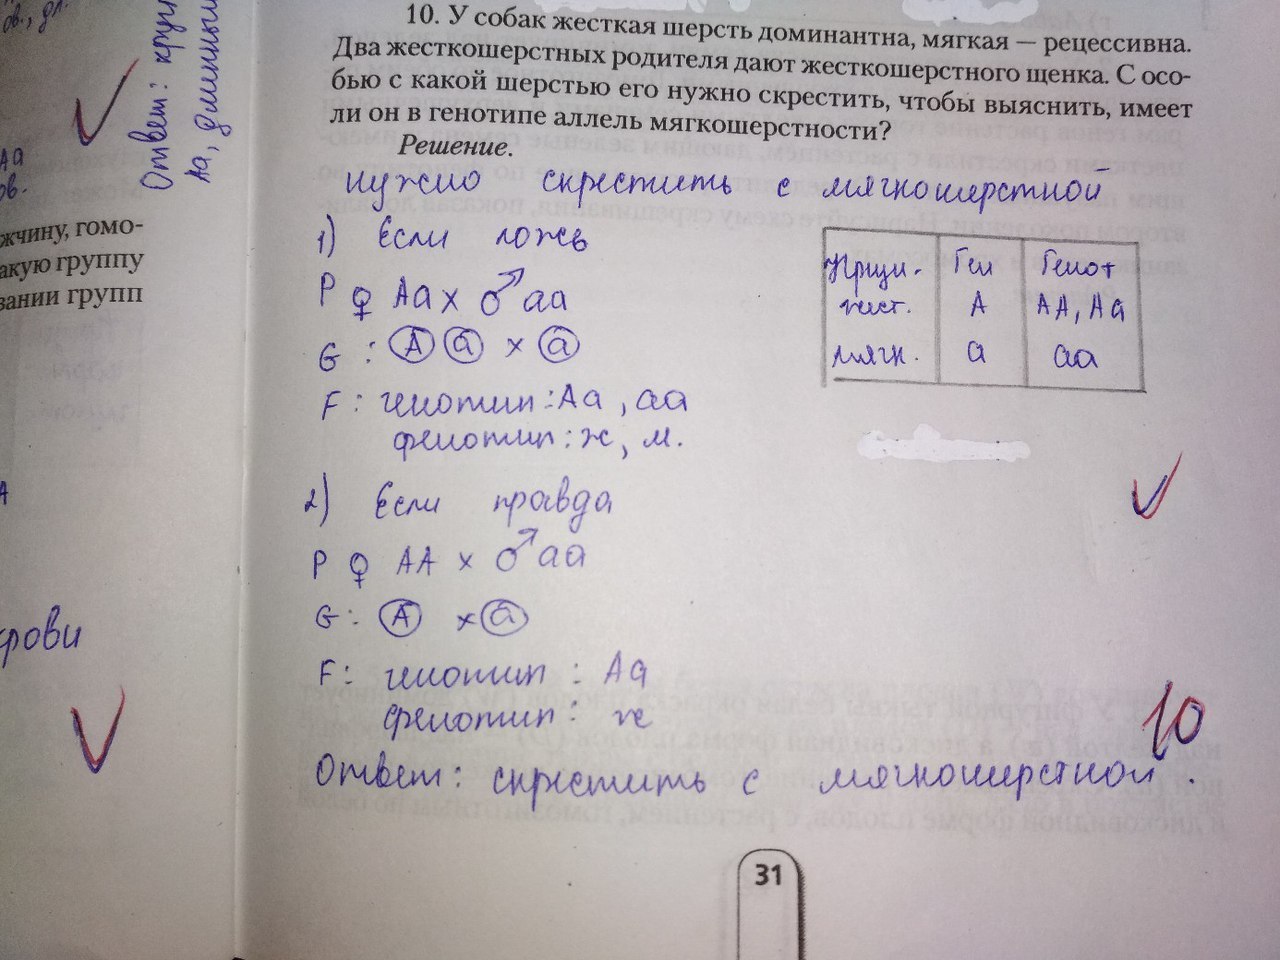 ов., дл.
Ответ: круп
Аа, доминан
Аа
ов.
жчину, гомо-
акую группу
вании групп
А
рови
10. У собак жесткая шерсть доминантна, мягкая — рецессивна.
Два жесткошерстных родителя дают жесткошерстного щенка. С осо-
бью с какой шерстью его нужно скрестить, чтобы выяснить, имеет
ли он в генотипе аллель мягкошерстности?
Решение.
нужно скрестить с мягкошерстной
1) Если ложь
Р ♀ Аа х ♂ аа
G : А а х а
F : генотип : Аа , аа
фенотип : ж , м.
Призн. Ген Генот
жест. А АА, Аа
мягк. а аа
2) Если правда
Р ♀ АА х ♂ аа
G : А х а
F : генотип : Аа
фенотип : ж
10
Ответ : скрестить с мягкошерстной .
31